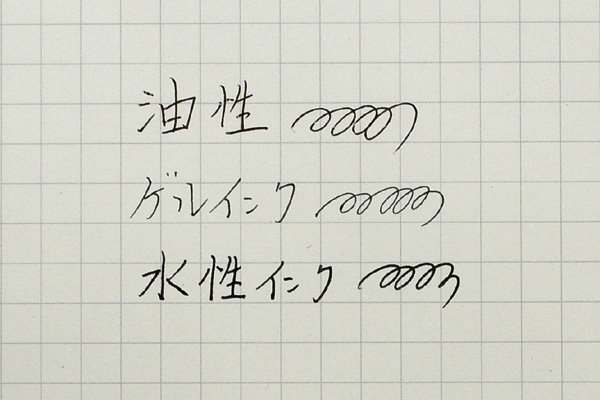 油性
ゲルインク
水性インク